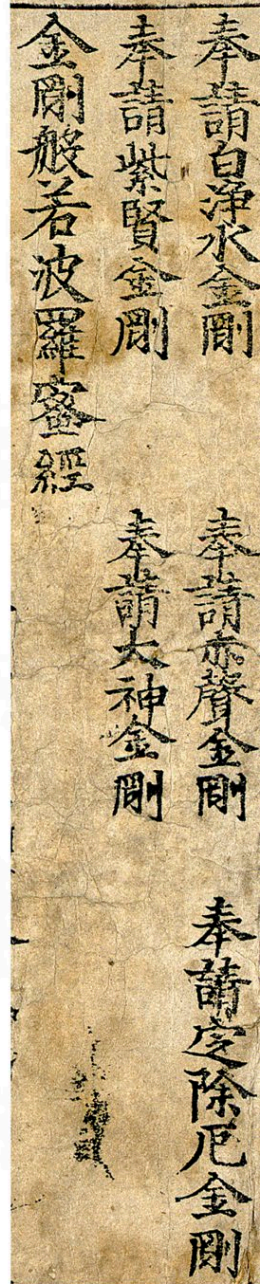 奉請白淨水金剛　奉請赤聲金剛　奉請定除厄金剛
奉請紫賢金剛　奉請大神金剛
金剛般若波羅蜜經